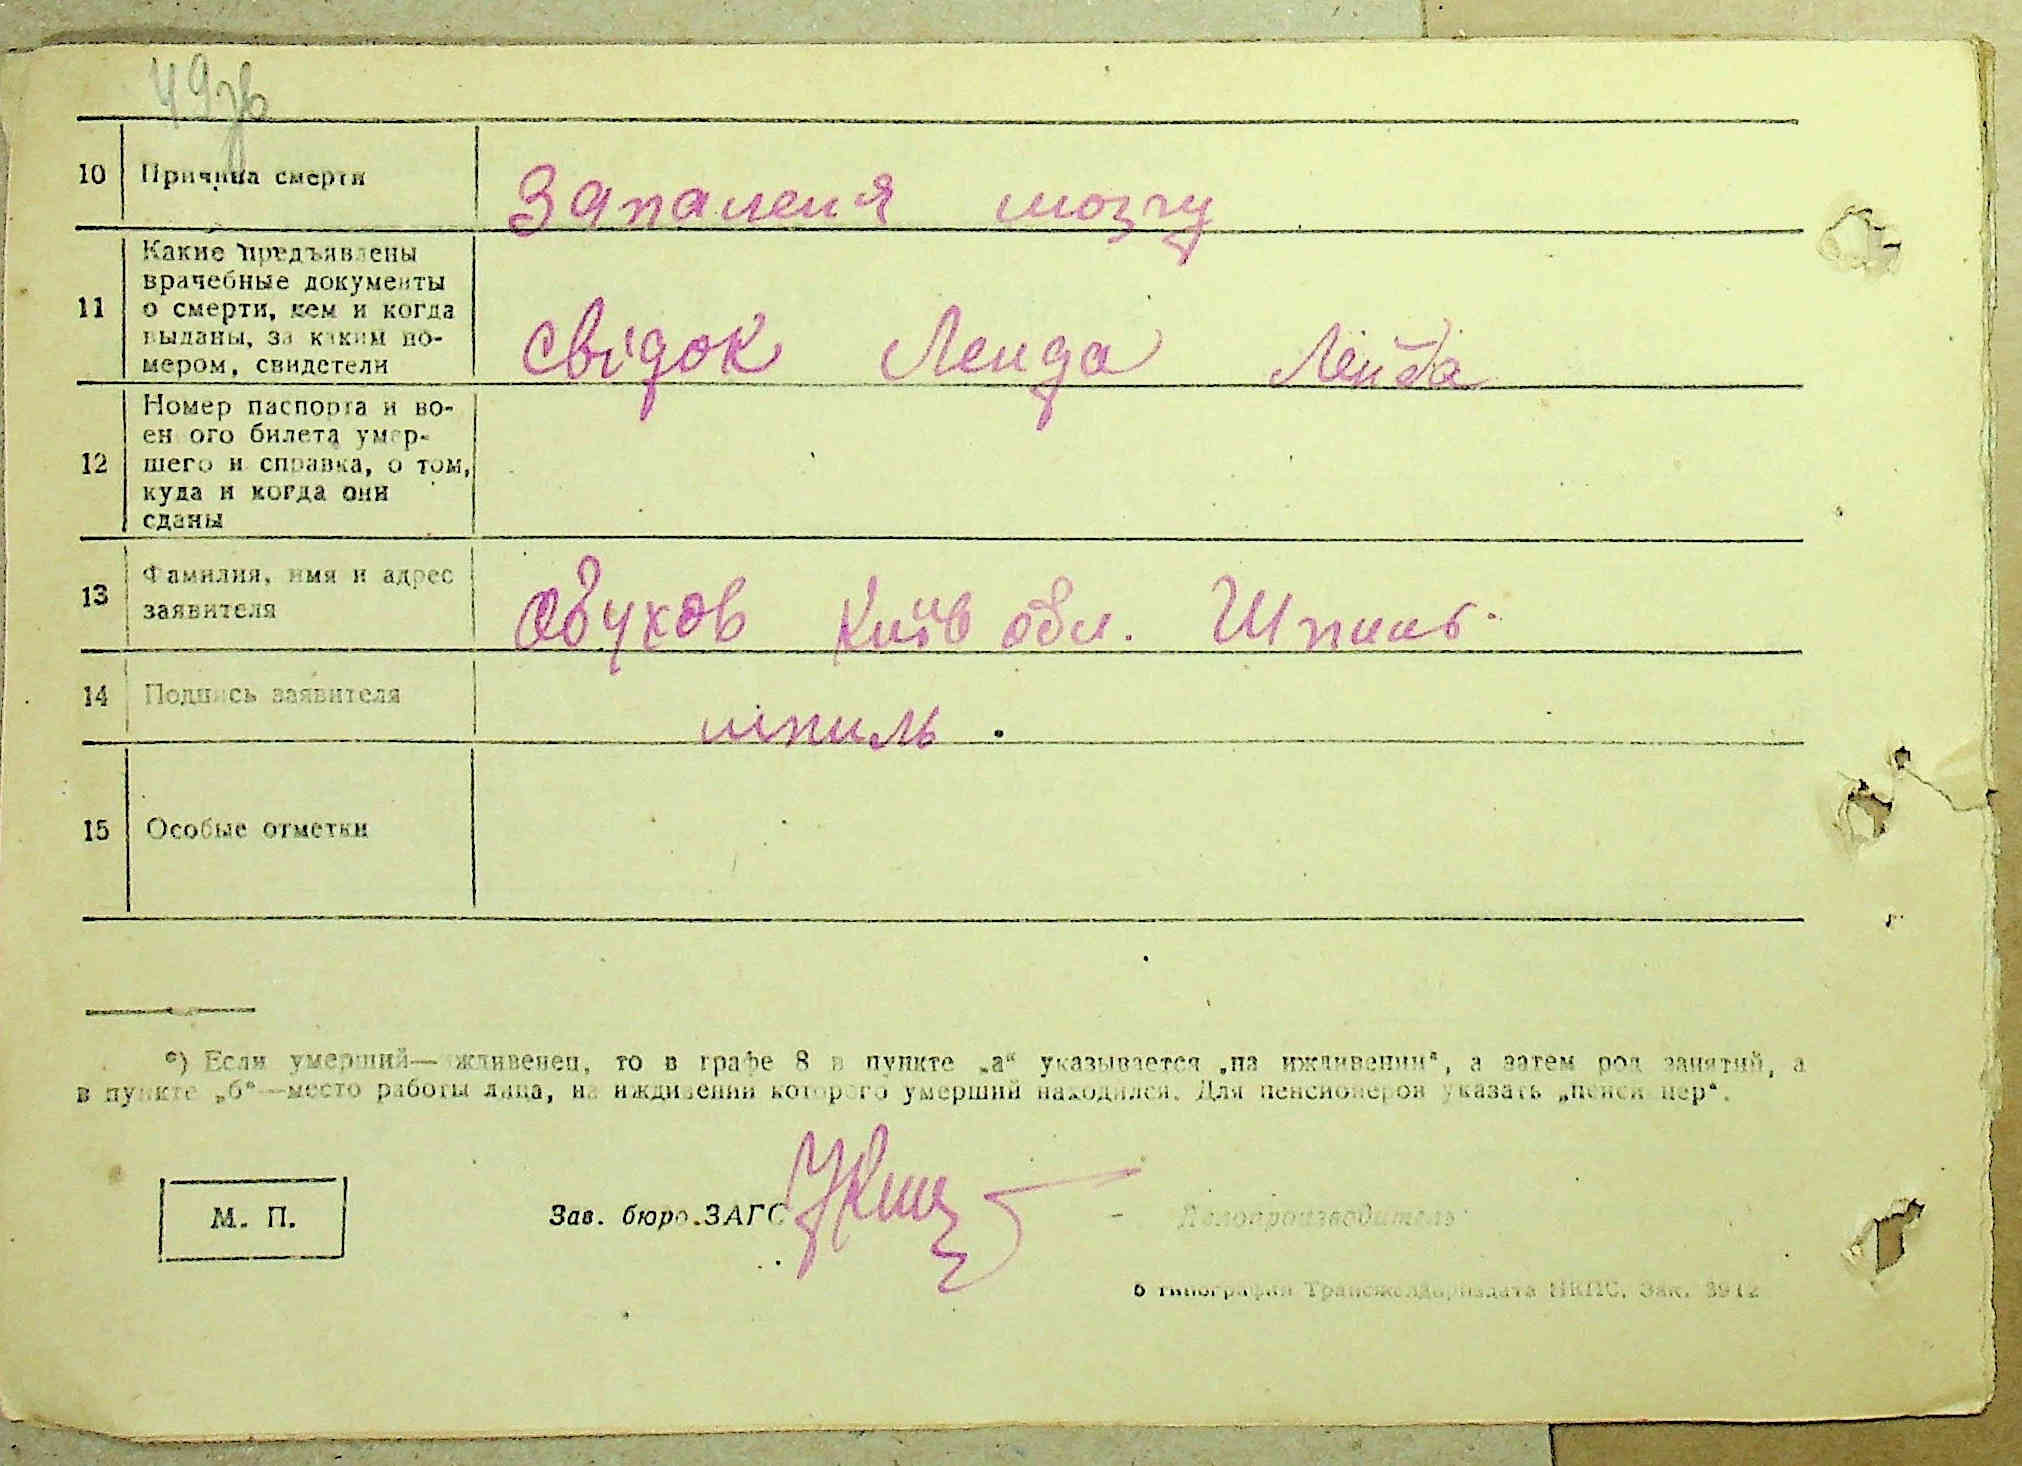 49зв
10 Причина смерти Запаленя мозгу
11 Какие предъявлены
врачебные документы
о смерти, кем и когда
выданы, за каким но-
мером, свидетели
свідок Ленда Лейба
12 Номер паспорта и во-
енного билета умер-
шего и справка, о том,
куда и когда они
сданы
13 Фамилия, имя и адрес
заявителя
Обухов Київ обл. Шпиль.
14 Подпись заявителя шпиль.
15 Особые отметки
*) Если умерший—иждивенец, то в графе 8 в пункте „а“ указывается „на иждивении“, а затем род занятий, а
в пункте „б“—место работы лица, на иждивении которого умерший находился. Для пенсионеров указать „пенсионер“.
М. П.
Зав. бюро ЗАГС
Делопроизводитель
6 типография Трансжелдориздата НКПС. Зак. 3912